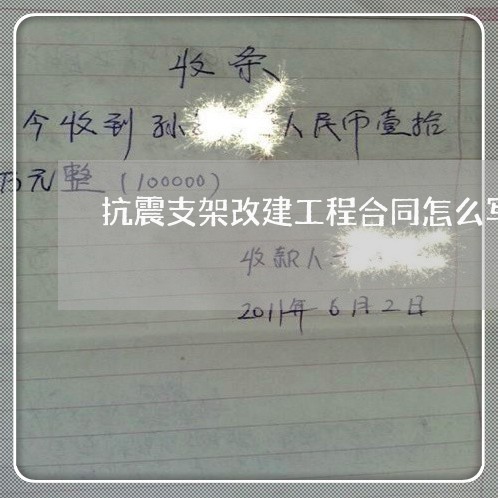 收条
今收到孙 人民币壹拾
万元整（100000）
抗震支架改建工程合同怎么写
收款人
2011年6月2日